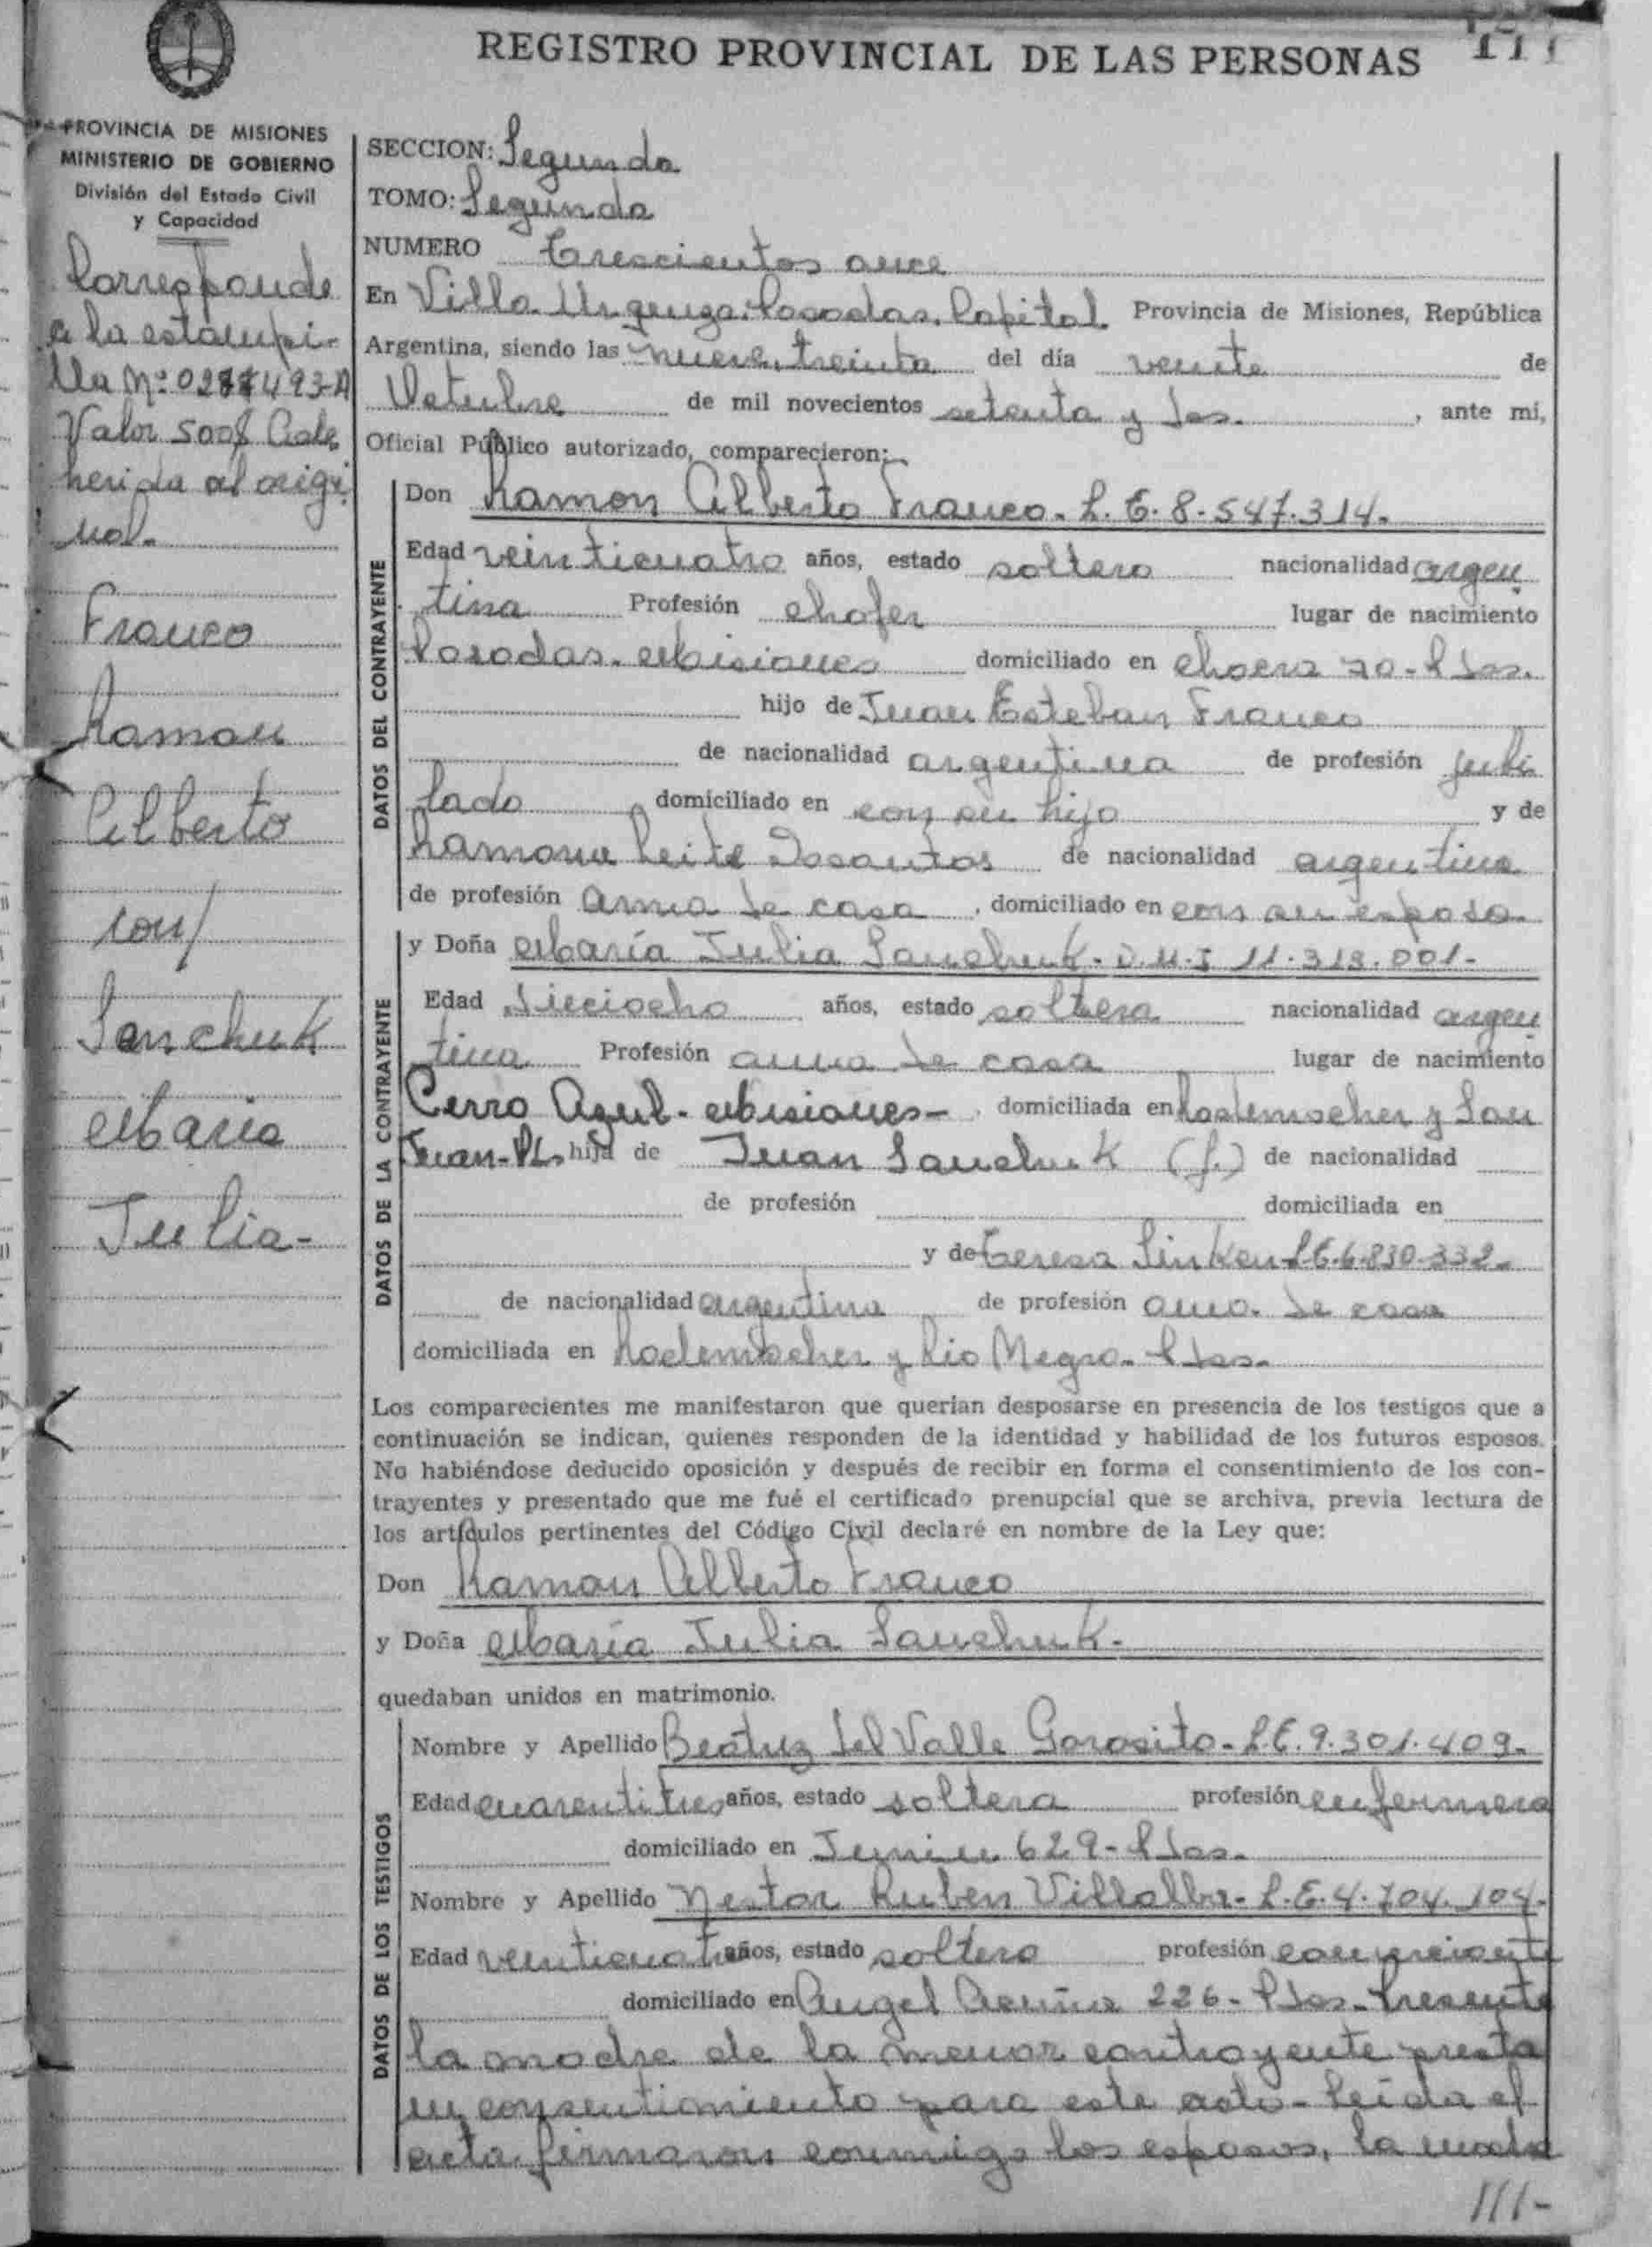 REGISTRO PROVINCIAL DE LAS PERSONAS
PROVINCIA DE MISIONES
MINISTERIO DE GOBIERNO
División del Estado Civil
y Capacidad
Corresponde
a la estampi-
lla Nº
Valor 500$ Ade
herida al origi
nal.
Franco
Ramon
Alberto
con/
Sanchuk
Maria
Julia-
SECCION: Segunda
TOMO: Segundo
NUMERO Trescientos once
En Villa Urquiza. Posadas. Capital. Provincia de Misiones, República
Argentina, siendo las nueve, treinta del día veinte de
Octubre de mil novecientos setenta y dos. , ante mí,
Oficial Público autorizado, comparecieron:
DATOS DEL CONTRAYENTE
Don Ramon Alberto Franco. L.E. 8.547.314.
Edad veinticuatro años, estado soltero nacionalidad argen
tina Profesión chofer lugar de nacimiento
Posadas. Misiones domiciliado en chacra 70-Pdas.
hijo de Juan Esteban Franco
de nacionalidad argentina de profesión jubi
lado domiciliado en con su hijo y de
Ramona Leite Dosantos de nacionalidad argentina
de profesión ama de casa , domiciliado en con su esposo.
DATOS DE LA CONTRAYENTE
y Doña María Julia Sanchuk. D.N.I 11.318.001-
Edad dieciocho años, estado soltera nacionalidad argen
tina Profesión ama de casa lugar de nacimiento
Cerro Azul. Misiones- domiciliada en y San
Juan-Pds hija de Juan Sanchuk (f.) de nacionalidad
de profesión domiciliada en
y de Teresa L.E. 6.830.332-
de nacionalidad argentina de profesión ama. de casa
domiciliada en y Rio Negro. Pdas.
Los comparecientes me manifestaron que querían desposarse en presencia de los testigos que a
continuación se indican, quienes responden de la identidad y habilidad de los futuros esposos.
No habiéndose deducido oposición y después de recibir en forma el consentimiento de los con-
trayentes y presentado que me fué el certificado prenupcial que se archiva, previa lectura de
los artículos pertinentes del Código Civil declaré en nombre de la Ley que:
Don Ramon Alberto Franco
y Doña María Julia Sanchuk.
quedaban unidos en matrimonio.
DATOS DE LOS TESTIGOS
Nombre y Apellido Beátriz del Valle Gorosito- L.E. 9.301.409.
Edad cuarentitres años, estado soltera profesión enfermera
domiciliado en Junin 629-Pdas.
Nombre y Apellido Nestor Ruben Villalba- L.E. 4.704.104.
Edad veinticuatro años, estado soltero profesión comerciante
domiciliado en Angel Acuña 226- Pdas- Presente
la madre de la menor contrayente presta
su consentimiento para este acto- Leída el
acta firmaron conmigo los esposos, la madre
///-